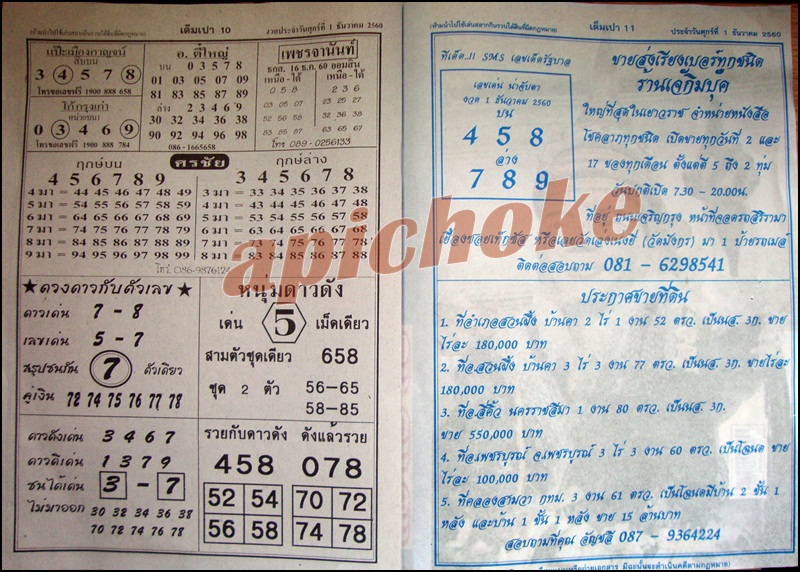 (ห้ามนำไปใช้เล่นสลากกินรวบได้สินที่ผิดกฎหมาย) เต็มเปา 10 งวดประจำวันศุกร์ที่ 1 ธันวาคม 2560
แป๊ะเมืองกาญจน์
สิบบน
3 4 5 7 8
โทรขอเลขฟรี 1900 888 658
ไก่กรุงเก่า
หน่วยบน
0 3 4 6 9
โทรขอเลขฟรี 1900 888 784
อ. ตี๋ใหญ่
บน 0 3 5 7 8
01 03 05 07 09
81 83 85 87 89
ล่าง 2 3 4 6 9
30 32 34 36 38
90 92 94 96 98
086-1665658
เพชรจานันท์
ธกส. 16 ธ.ค. 60 ออมสิน
เหนือ - ใต้ เหนือ - ใต้
0 5 8 2 3 6
03 05 07 23 25 27
52 56 58 32 36 38
83 85 87 63 65 67
โทร 089-0256133
ฤกษ์บน ศรชัย ฤกษ์ล่าง
4 5 6 7 8 9 3 4 5 6 7 8
4 มา = 44 45 46 47 48 49 3 มา = 33 34 35 36 37 38
5 มา = 54 55 56 57 58 59 4 มา = 43 44 45 46 47 48
6 มา = 64 65 66 67 68 69 5 มา = 53 54 55 56 57 58
7 มา = 74 75 76 77 78 79 6 มา = 63 64 65 66 67 68
8 มา = 84 85 86 87 88 89 7 มา = 73 74 75 76 77 78
9 มา = 94 95 96 97 98 99 8 มา = 83 84 85 86 87 88
โทร. 086-9876124
★ดวงดาวกับตัวเลข★
ดาวเด่น 7 - 8
เลขเด่น 5 - 7
สรุปชนกัน 7 ตัวเดียว
คู่เงิน 72 74 75 76 77 78
หนุ่มดาวดัง
เด่น 5 เม็ดเดียว
สามตัวชุดเดียว 658
ชุด 2 ตัว 56-65
58-85
ดาวดังเด่น 3 4 6 7
ดาวดีเด่น 1 3 7 9
ชนได้เด่น 3 - 7
ไม่มาออก 30 32 34 36 38
70 72 74 76 78
รวยกับดาวดัง ดังแล้วรวย
458 078
52 54 70 72
56 58 74 78
(ห้ามนำไปใช้เล่นสลากกินรวบได้สินที่ผิดกฎหมาย) เต็มเปา 11 ประจำวันศุกร์ที่ 1 ธันวาคม 2560
ทีเด็ด..!! SMS เลขเด็ดรัฐบาล
เลขเด่น น่าจับตา
งวด 1 ธันวาคม 2560
บน
4 5 8
ล่าง
7 8 9
ขายส่งเรียงเบอร์ทุกชนิด
ร้านเจ๊กิมบุค
ใหญ่ที่สุดในเยาวราช จำหน่ายหนังสือ
โชคลาภทุกชนิด เปิดขายทุกวันที่ 2 และ
17 ของทุกเดือน ตั้งแต่ตี 5 ถึง 2 ทุ่ม
วันปกติเปิด 7.30 - 20.00น.
ที่อยู่ ถนนเจริญกรุง หน้าที่จอดรถสิริรามา
เยื้องซอยเท็กซัส หรือเลยวัดเล่งเน่ยยี่ (วัดมังกร) มา 1 ป้ายรถเมล์
ติดต่อสอบถาม 081 - 6298541
ประกาศขายที่ดิน
1. ที่อำเภอสวนผึ้ง บ้านคา 2 ไร่ 1 งาน 52 ตรว. เป็นนส. 3ก. ขาย
ไร่ละ 180,000 บาท
2. ที่อ.สวนผึ้ง บ้านคา 3 ไร่ 3 งาน 77 ตรว. เป็นนส. 3ก. ขายไร่ละ
180,000 บาท
3. ที่อ.สีคิ้ว นครราชสีมา 1 งาน 80 ตรว. เป็นนส. 3ก.
ขาย 550,000 บาท
4. ที่อ.เพชรบูรณ์ จ.เพชรบูรณ์ 3 ไร่ 3 งาน 60 ตรว. เป็นโฉนด ขาย
ไร่ละ 100,000 บาท
5. ที่คลองสามวา กทม. 3 งาน 61 ตรว. เป็นโฉนดมีบ้าน 2 ชั้น 1
หลัง และบ้าน 1 ชั้น 1 หลัง ขาย 15 ล้านบาท
สอบถามที่คุณ อัญชลี 087 - 9364224
apichoke